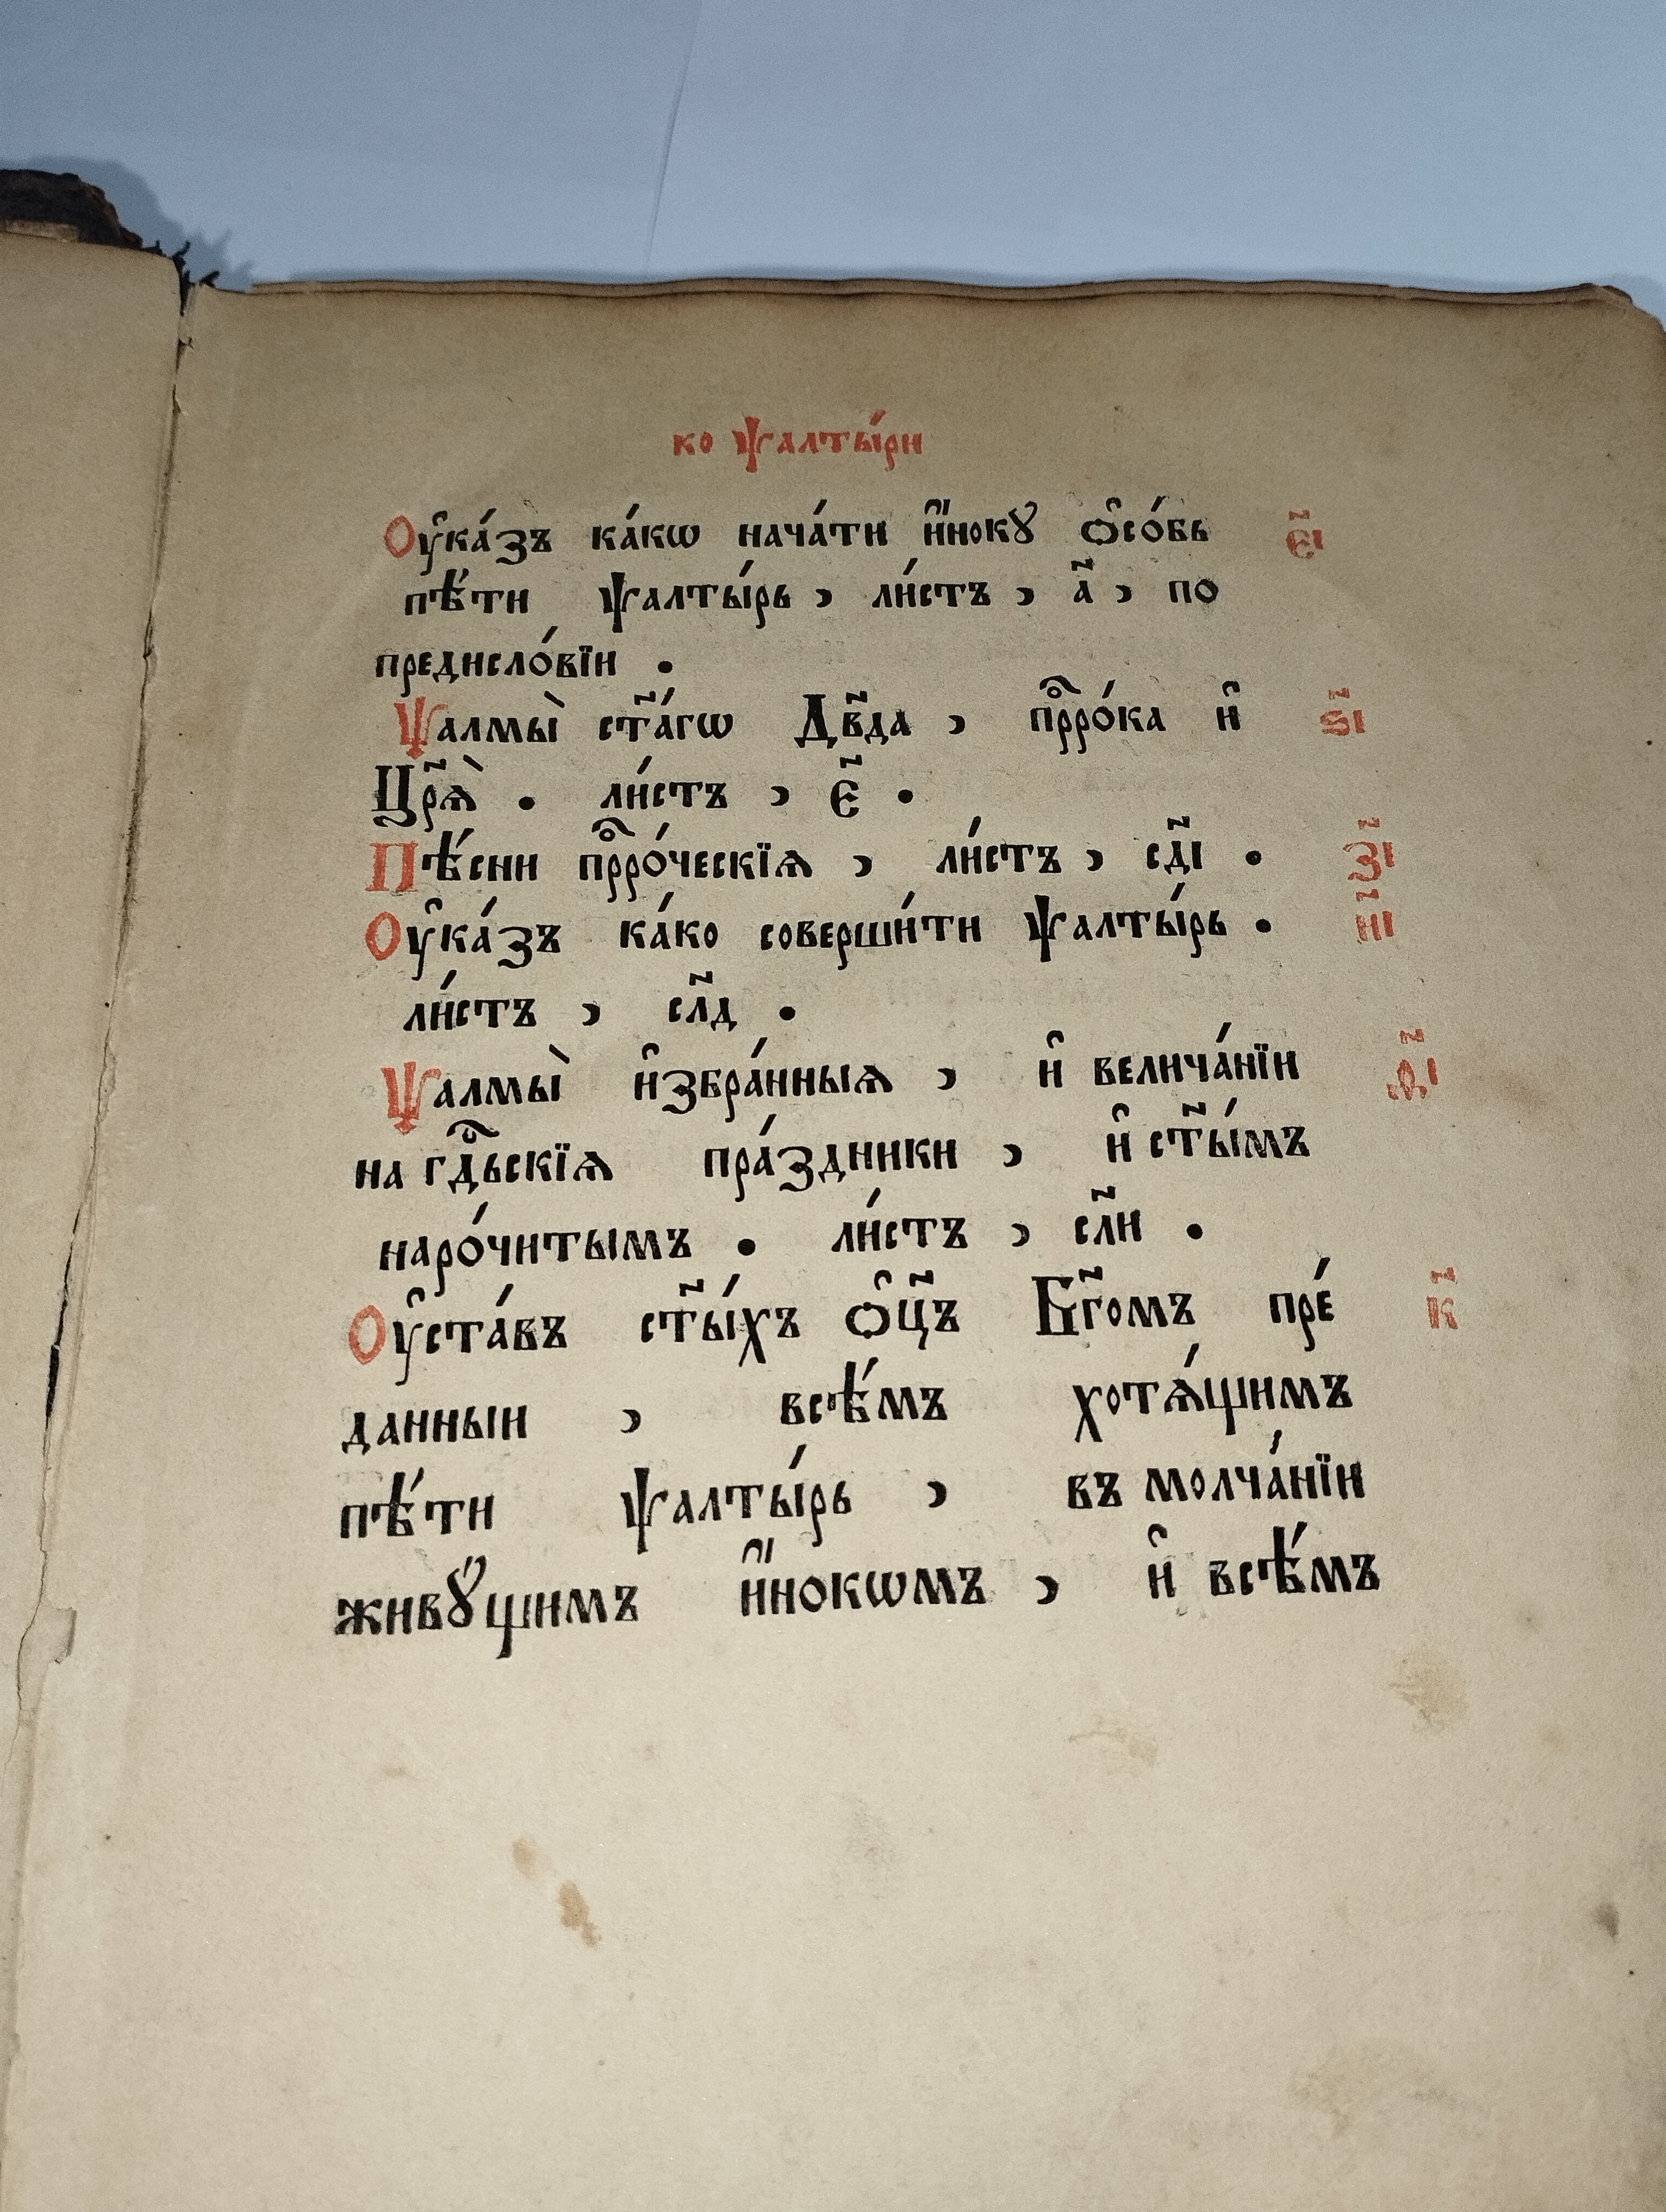 ко ѱалты́ри
Оу҆ка́зъ ка́кѡ нача́ти и҆́нокꙋ ѻ҆со́бь е҃і
пѣ́ти ѱалты́рь , ли́стъ , а҃ , по
предисло́вїи .
Ѱалмы̀ ст҃а́гѡ Дв҃да , прⷪ҇ро́ка и҆ ѕ҃і
Цр҃ѧ̀ . ли́стъ , є҃ .
Пѣ́сни прⷪ҇ро́ческїѧ , ли́стъ , сд҃і . з҃і
Оу҆ка́зъ ка́ко соверши́ти ѱалты́рь . и҃і
ли́стъ , сл҃д .
Ѱалмы̀ и҆збра́нныѧ , и҆ велича́нїи ѳ҃і
на гдⷭ҇ьскїѧ пра́здники , и҆ ст҃ы́мъ
наро́читымъ . ли́стъ , сл҃и .
Оу҆ста́въ ст҃ы́хъ ѻ҆ц҃ъ Бг҃омъ пре́ к҃
данныи , всѣ́мъ хотѧ́щимъ
пѣ́ти ѱалты́рь , въ молча́нїи
живꙋ́щимъ и҆́нокѡмъ , и҆ всѣ́мъ